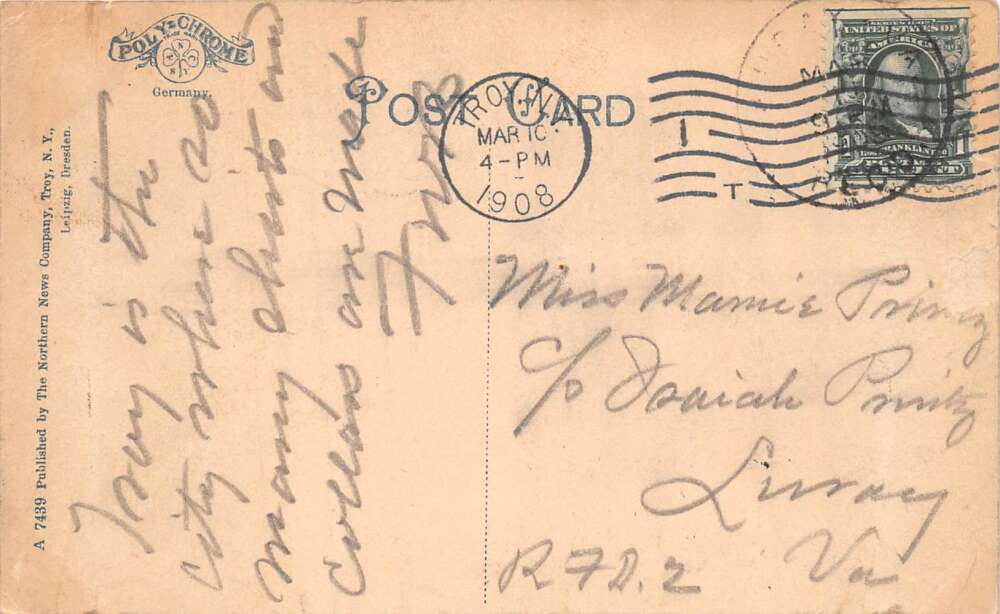 POLY-CHROME
Germany.
POST CARD
TROY, N.Y.
MAR 10
4-PM
1908
I
T
MAR
9 AM
REC'D
SERIES 1902
UNITED STATES OF
AMERICA
FRANKLIN
1 ONE CENT 1
A 7439 Published by The Northern News Company, Troy, N. Y.,
Leipzig, Dresden.
Troy is the
city where so
many shirts and
collars are made
Miss Mamie Printz
c/o Isaiah Printz
Luray
R F D. 2 Va